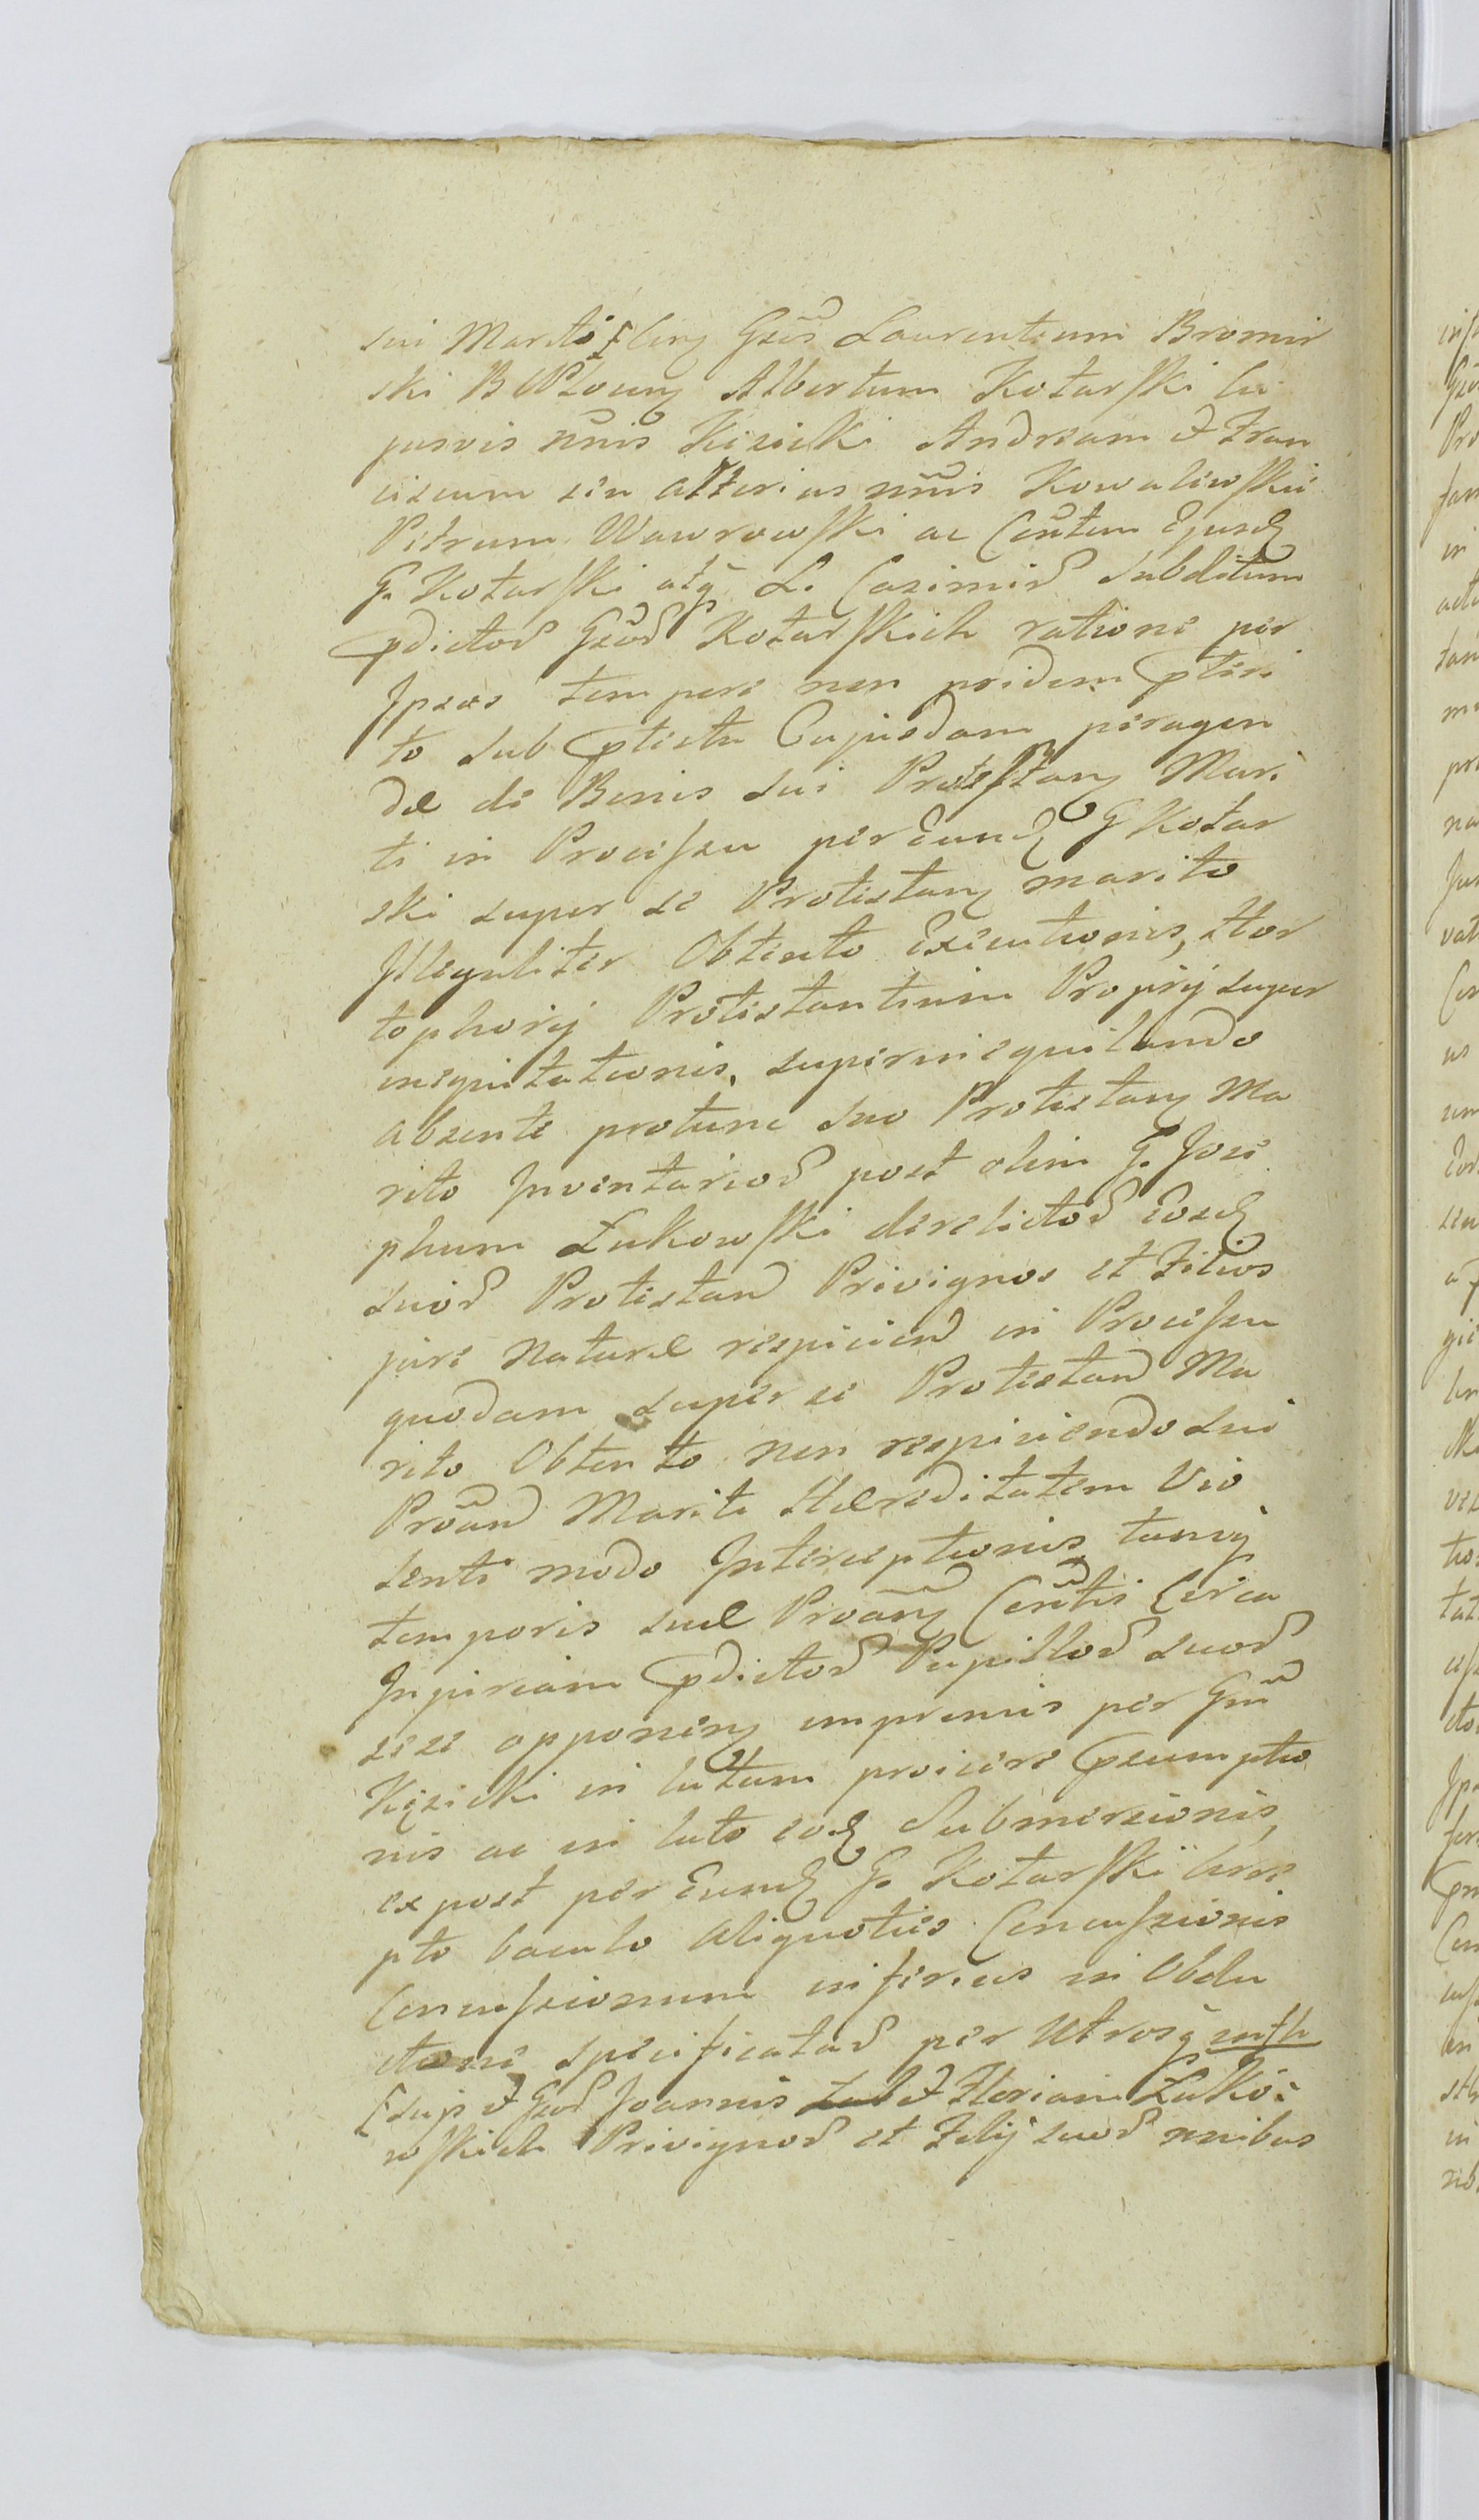 sui Marito Gsis Laurentium Bromir
ski B Albertum Kotarski cu
jusvis nnis Kizicki Andream et Fran
ciscum seu alterius nnis Kowalewskii
Petrum Wawrowski ac Cmtem Ejusd
G. Kotarski atq L. Casimir Subditum
pdictor Gsor Kotarskich ratione per
Ipsos tempore non pridem pteri
to sub ptextu Cujusdam peragen
dae de Bonis sui Protestan Mari
ti in Processu per Eund G Kotar
ski super se Protestan marito
Illegaliter Obtento Executionis, Hor
tophorij Protestantium Proprij super
inequitationis, superinequitando
absente protunc suo Protestan Ma
rito Inventarior post olim G. Jose
phum Łukowski derelictor Eosd
suor Protestan Privignos et Filios
jure naturae respicien in Processu
quodam super se Protestan Ma
rito Obtento non respiciendo sui
Proan Mariti Haereditatem Vio
lenti modo Interceptionis, tamq
temporis suae Proan Cmtis Circa
Injuriam pdictor Pupillor suor
sese opponen imprimis per Gm
Kizicki in lutum proicere psumptio
nis ac in luto eod Submersionis,
ex post per Eund G. Kotarski arre
pto baculo aliquoties Concussionis
Concussionum inferius in Obdu
ctione specificatar per Utrosq
Gsor Joannis et Floriani Łuko:
wskich Privignor et Filij suor nnibus